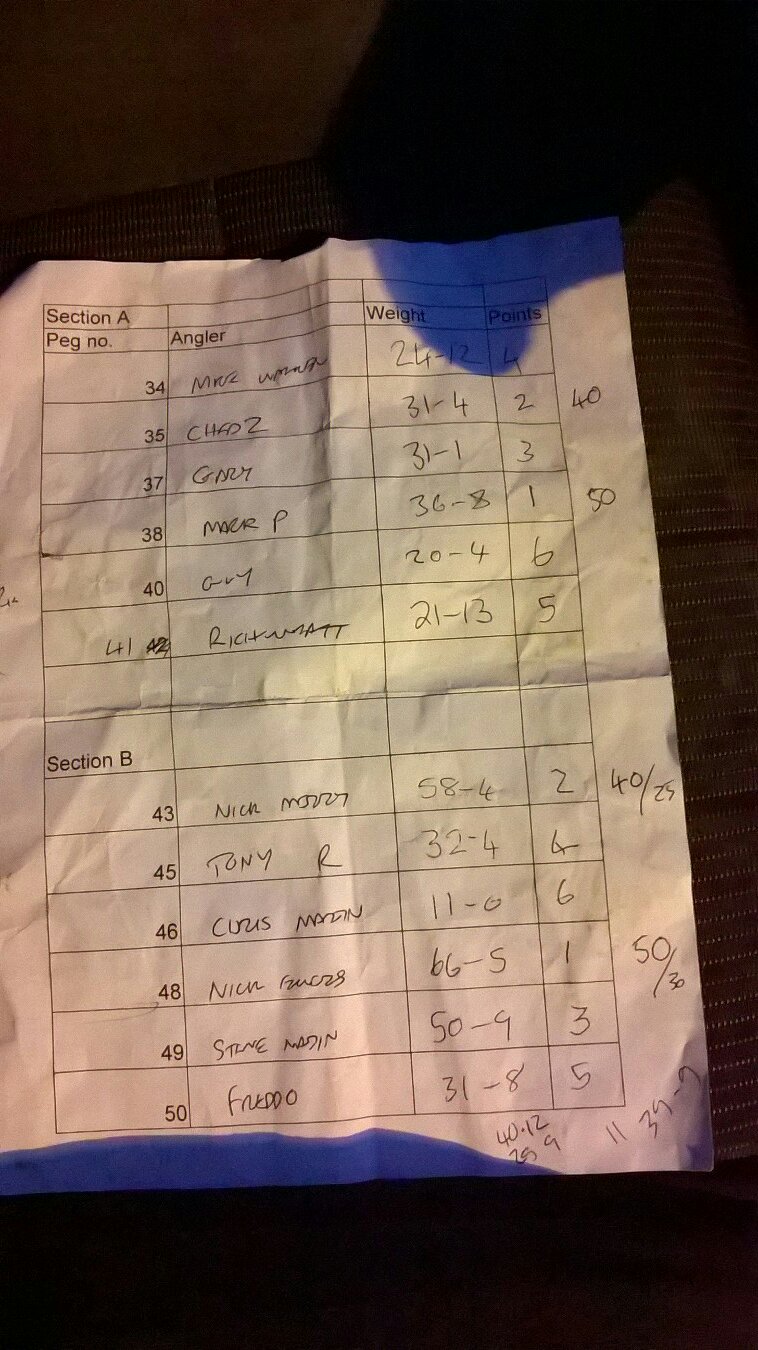 Section A
Weight Points
Peg no. Angler
34 24-12 4
35 CHADZ 31-4 2 40
37 GARY 31-1 3
38 MARK P 36-8 1 50
40 GUY 20-4 6
41 42 RICH WYATT 21-13 5
Section B
43 NICK 58-4 2 40/25
45 TONY R 32-4 4
46 CHRIS MADIN 11-0 6
48 NICK 66-5 1 50/30
49 STEVE MADIN 50-9 3
50 FREDDO 31-8 5
40.12
11 39-9